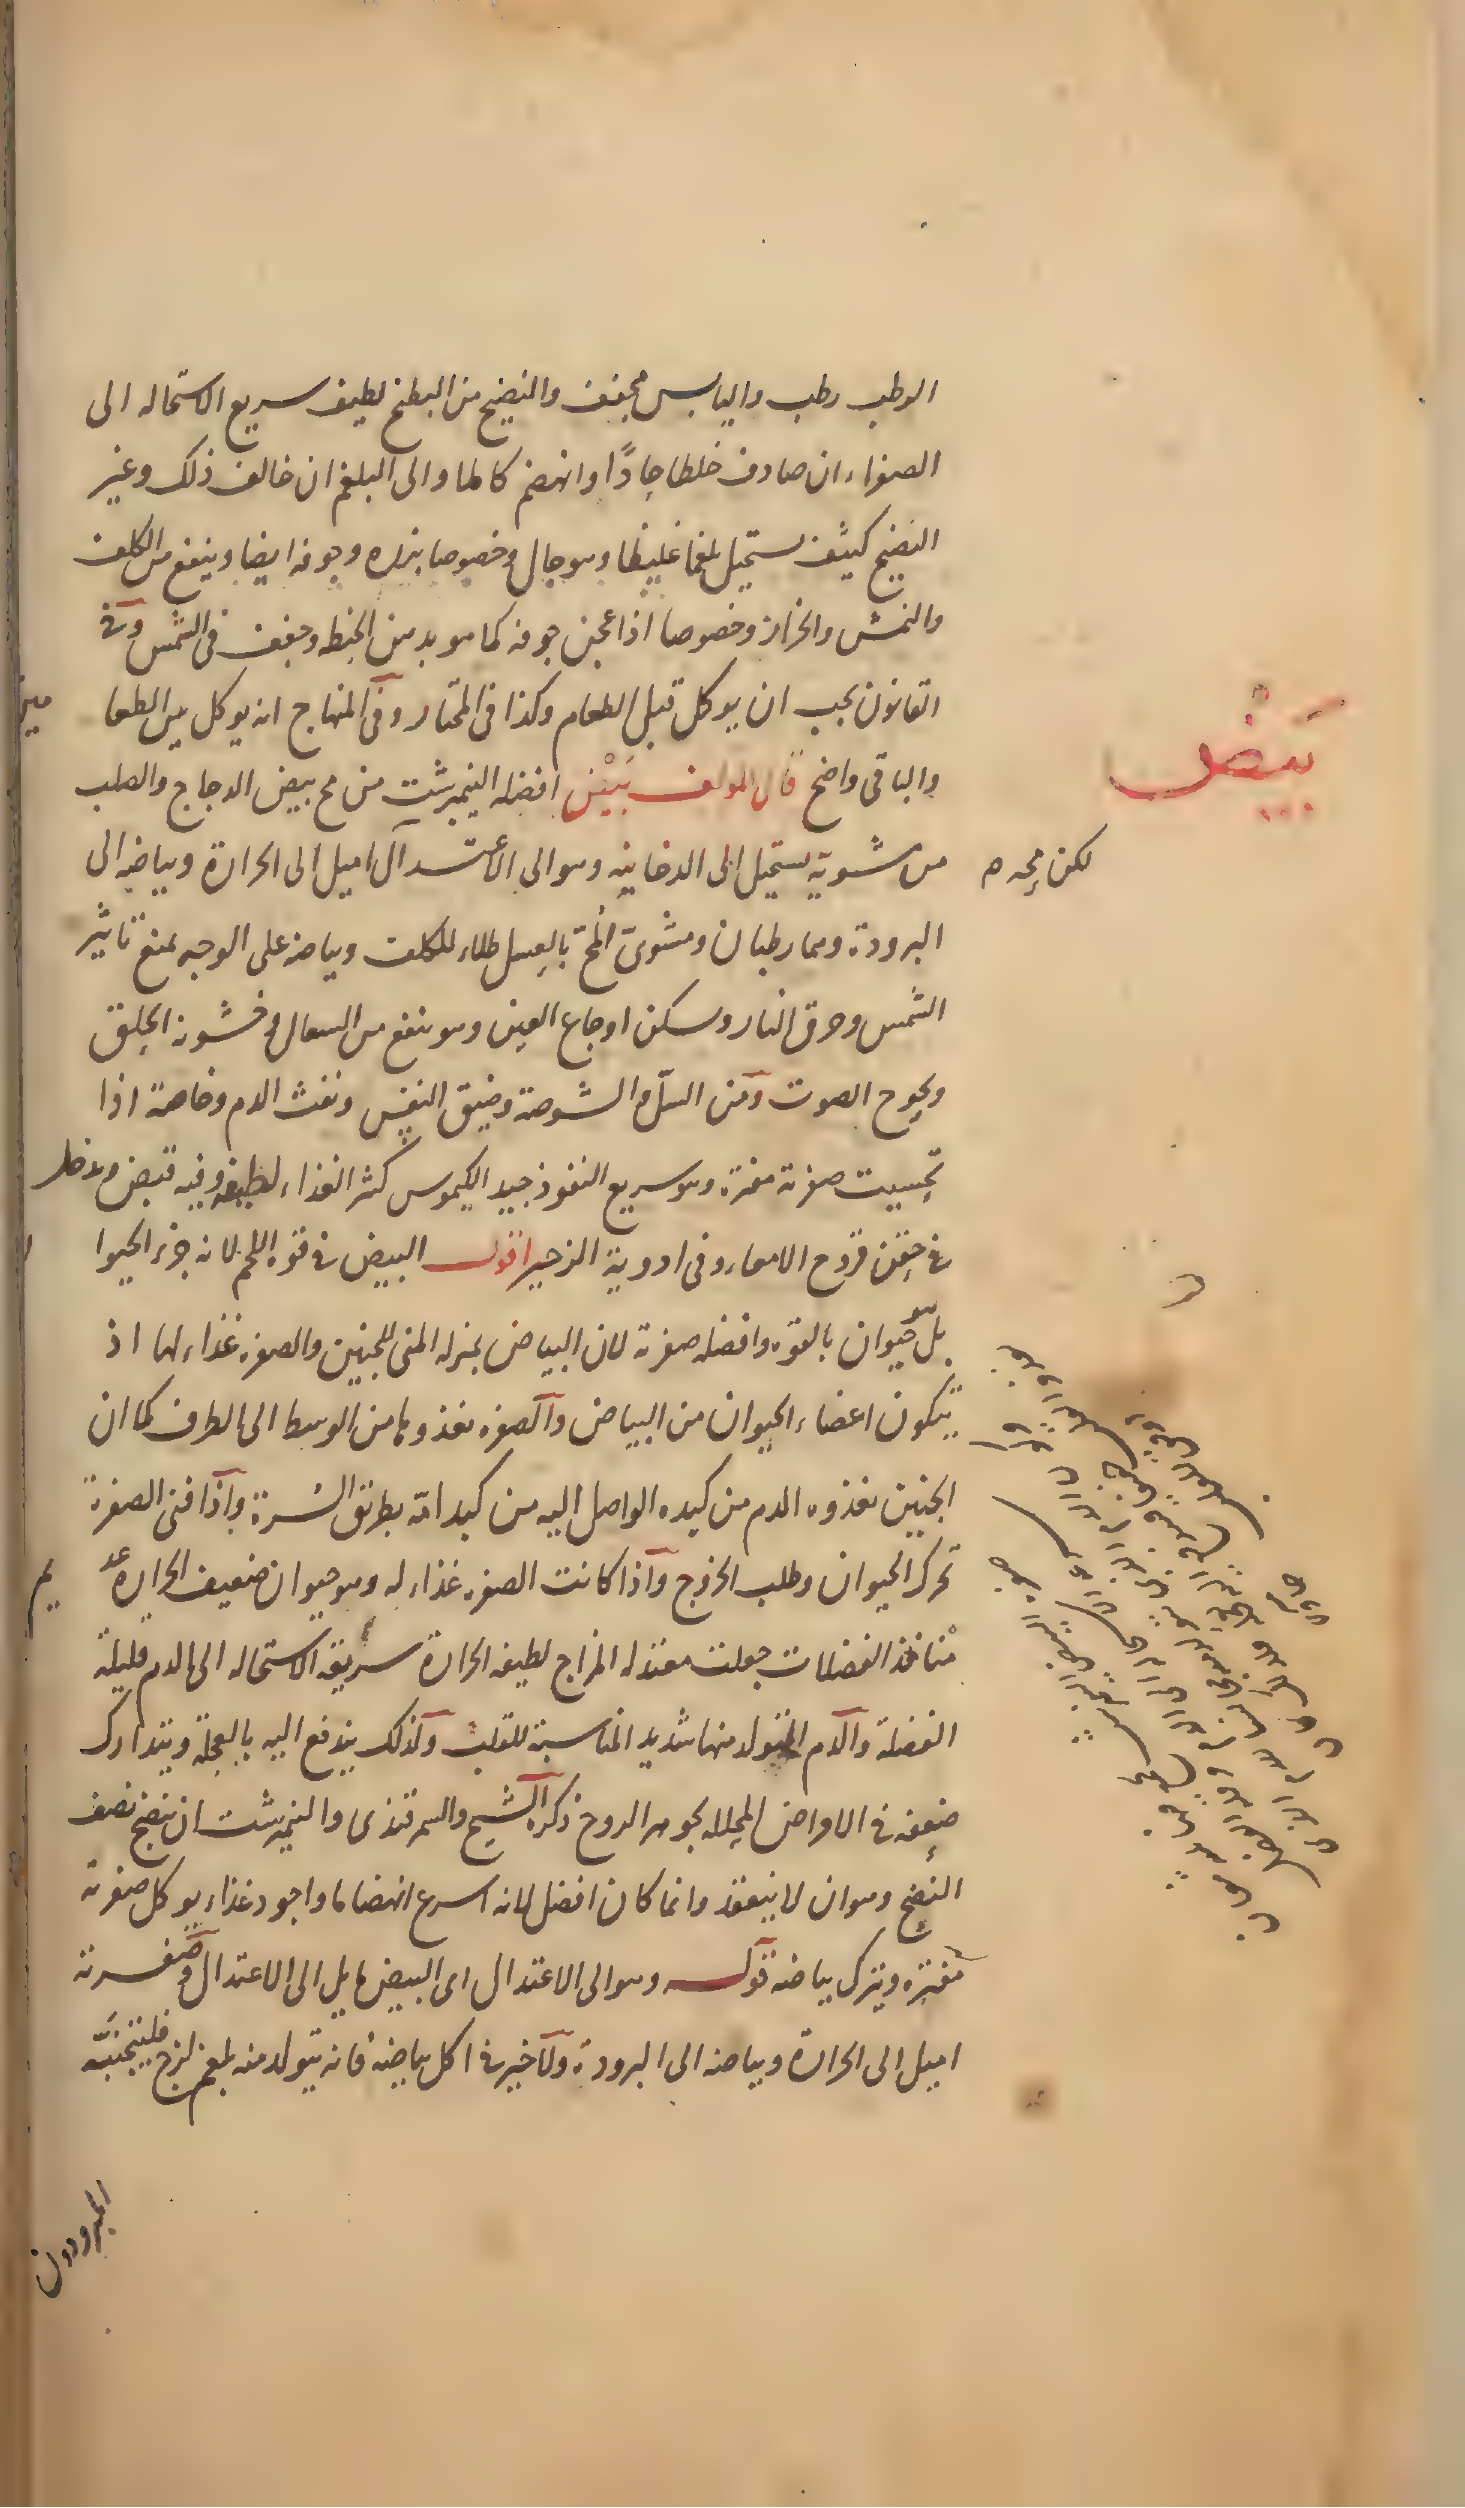 الرطب رطب واليابس مجفف والنضيج من البطيخ لطيف سريع الاستحاله الى
الصفراء ان صادف خلطا حادًا وانهضم كاملا والى البلغم ان خالف ذلك وغير
النضيج كثيف يستحيل بلغما غليظا وهو جال وخصوصا بزره وجوفه ايضا وينفع من الكلف
والنمش والحزاز وخصوصا اذا عجن جوفه كما هو بدهن الحنطه وجفف فى الشمس وفى
القانون يجب ان يوكل قبل الطعام وكذا فى المختار وفى المنهاج انه يوكل بين الطعا مين
بَيْض
والباقى واضح قال المولف بَيْض افضله النيمبرشت من مح بيض الدجاج والصلب
من مشويه يستحيل الى الدخانيه وهو الى الاعتدال اميل الى الحرارة وبياضه الى
لكن محه م
البرودة وهما رطبان ومشوى المح بالعسل طلاء للكلف وبياضه على الوجه يمنع تاثير
الشمس وحرق النار ويسكن اوجاع العين وهو ينفع من السعال وخشونة الحلق
وبحوح الصوت ومن السل والشوصة وضيق النفس ونفث الدم وخاصة اذا
تحسيت صفرته مفترة وهو سريع النفوذ جيد الكيموس كثير الغذاء لطيفه وفيه قبض ويدخل
فى حقن قروح الامعاء وفى ادوية الزحير اقول البيض فى قوة اللحم لانه جزء الحيوا ن
بل هو حيوان بالقوة وافضله صفرته لان البياض بمنزلة المنى للجنين والصفره غذاء لها اذ
يتكون اعضاء الحيوان من البياض والصفره تغذوها من الوسط الى الطرف كما ان
الجنين يغذوه الدم من كبده الواصل اليه من كبد امه بطريق السرة واذا فنى الصفرة
تحرك الحيوان وطلب الخروج واذا كانت الصفره غذاء له وهو حيوان ضعيف الحرارة عد يم
منافذ الفضلات جعلت معتدلة المزاج لطيفه الحرارة سريعة الاستحاله الى الدم قليلة
الفضلة والدم المتولد منها شديد المناسبة للقلب ولذلك يندفع اليه بالعجلة ويتدارك
ضعفه فى الامراض المحللة لجوهر الروح ذكره الشيخ والسمرقندى والنيمبرشت ان ينضج نصف
النضج وهو ان لا ينعقد وانما كان افضل لانه اسرع انهضاما واجود غذاء يوكل صفرته
مفترة ويترك بياضه قوله وهو الى الاعتدال اى البيض مايل الى الاعتدال وصفرته
اميل الى الحرارة وبياضه الى البرودة ولا خير فى اكل بياضه فانه يتولد منه بلغم لزج فليتجنبه
المبرودون